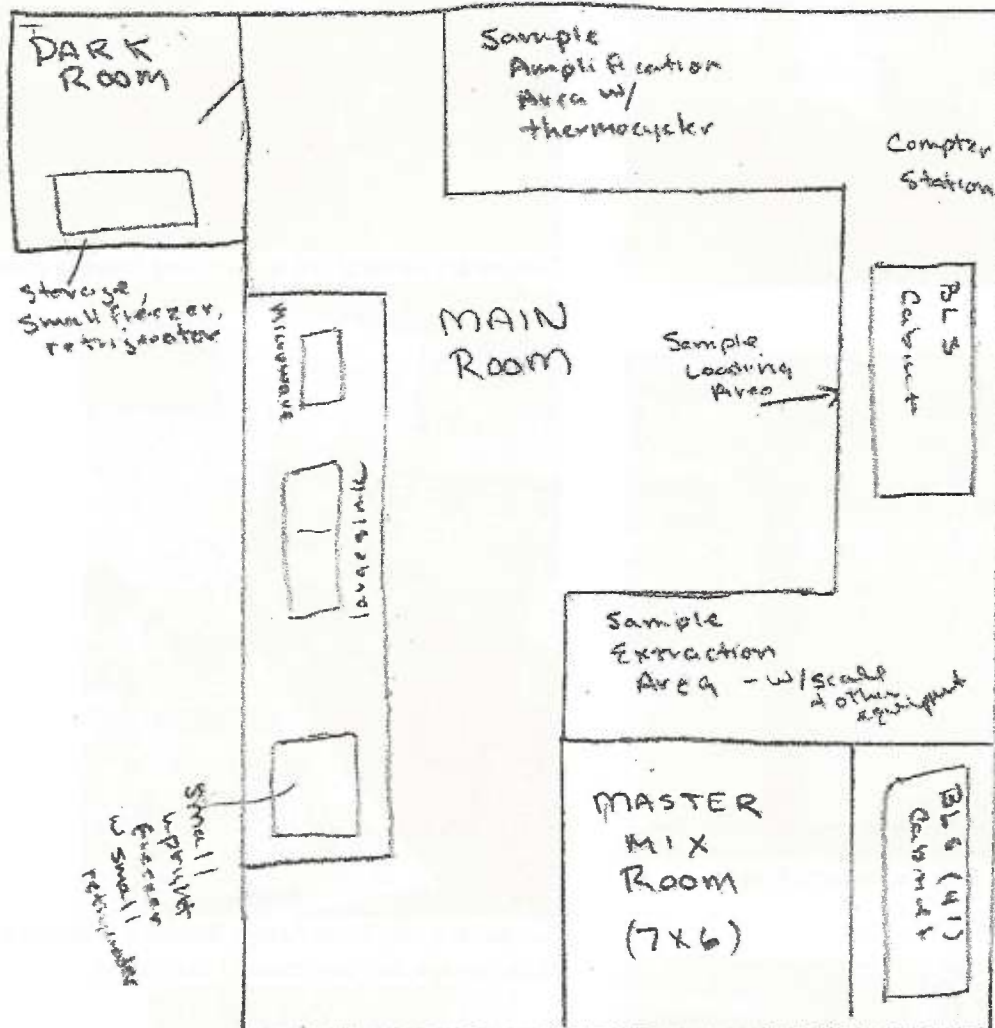 DARK
ROOM
Sample
Amplification
Area w/
thermocycler
Compter
Station
storage,
small freezer,
refrigerator
Microwave
MAIN
ROOM
Sample
Loading
Area
BLS
Cabinet
large sink
Sample
Extraction
Area - w/scale
+ other
equipment
small
upright
freezer
w small
refrigerator
MASTER
MIX
ROOM
(7x6)
BLS (41)
Cabinet